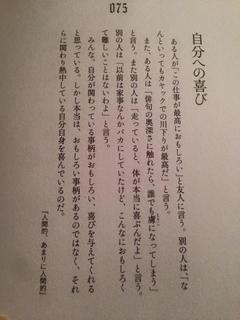 075
自分への喜び
ある人が「この仕事が最高におもしろい」と友人に言う。別の人は、「な
んといってもカヤックでの川下りが最高だ」と言う。
また、ある人は「俳句の奥深さに触れたら、誰でも虜になってしまう」
と言う。また別の人は「走っていると、体が本当に喜ぶんだよ」と言う。
別の人は「以前は家事なんかバカにしていたけど、こんなにおもしろく
て難しいことはないわよ」と言う。
みんな、自分が関わっている事柄がおもしろい、喜びを与えてくれる
と思っている。しかし本当は、おもしろい事柄があるのではなく、それ
らに関わり熱中している自分自身を喜んでいるのだ。
『人間的、あまりに人間的』